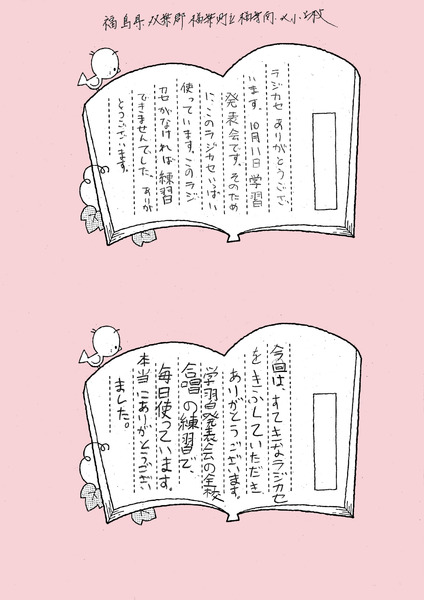 福島県双葉郡楢葉町立楢葉南小学校
ラジカセありがとうござ
います。10月11日学習
発表会です。そのため
にこのラジカセいっぱい
使っています。このラジ
カセがなければ練習
できませんでした。ありが
とうございます。
今回は、すてきなラジカセ
をきふしていただき
ありがとうございます。
学習発表会の全校
合唱の練習で、
毎日使っています。
本当にありがとうござい
ました。